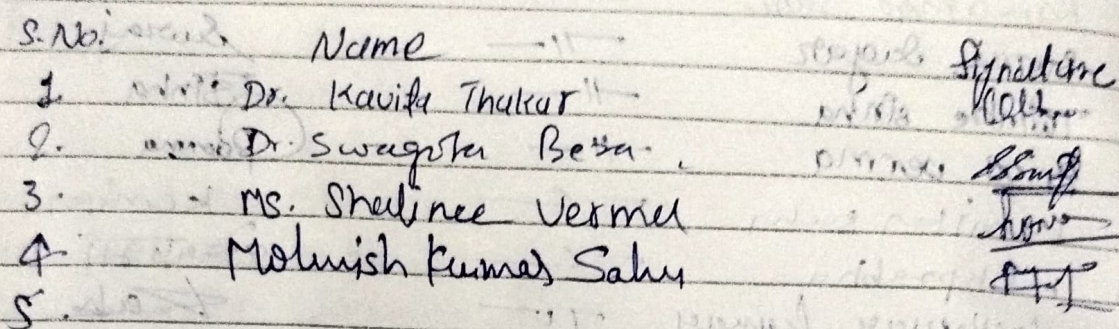 S. No. Name Signature
1. Dr. Kavita Thakur
2. Dr. Swagota Bera
3. Ms. Shalinee Verma
4 Mohnish Kumar Sahu
5.